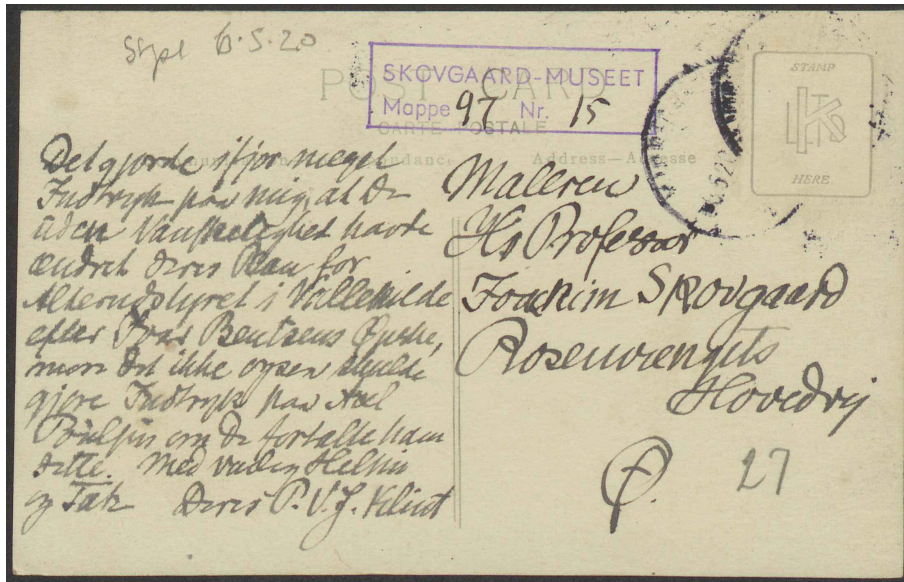 Stpl 6.5.20
SKOVGAARD-MUSEET
Mappe 97 Nr. 15
POST CARD
CARTE POSTALE
Address—Adresse
STAMP
HERE
Det gjorde ifjor meget
Indtryk paa mig, at De
uden Vanskelighed havde
ændret Deres Plan for
Alterudstyret i Vallekilde
efter Ivar Bentsens Ønske,
mon det ikke ogsaa skulde
gjøre Indtryk paa Axel
Poulsen om De fortalte ham
dette. Med venlig Hilsen
og Tak Deres P.V.J. Klint
Maleren
Hr Professor
Joakim Skovgaard
Rosenvængets
Hovedvej
Ø.
27